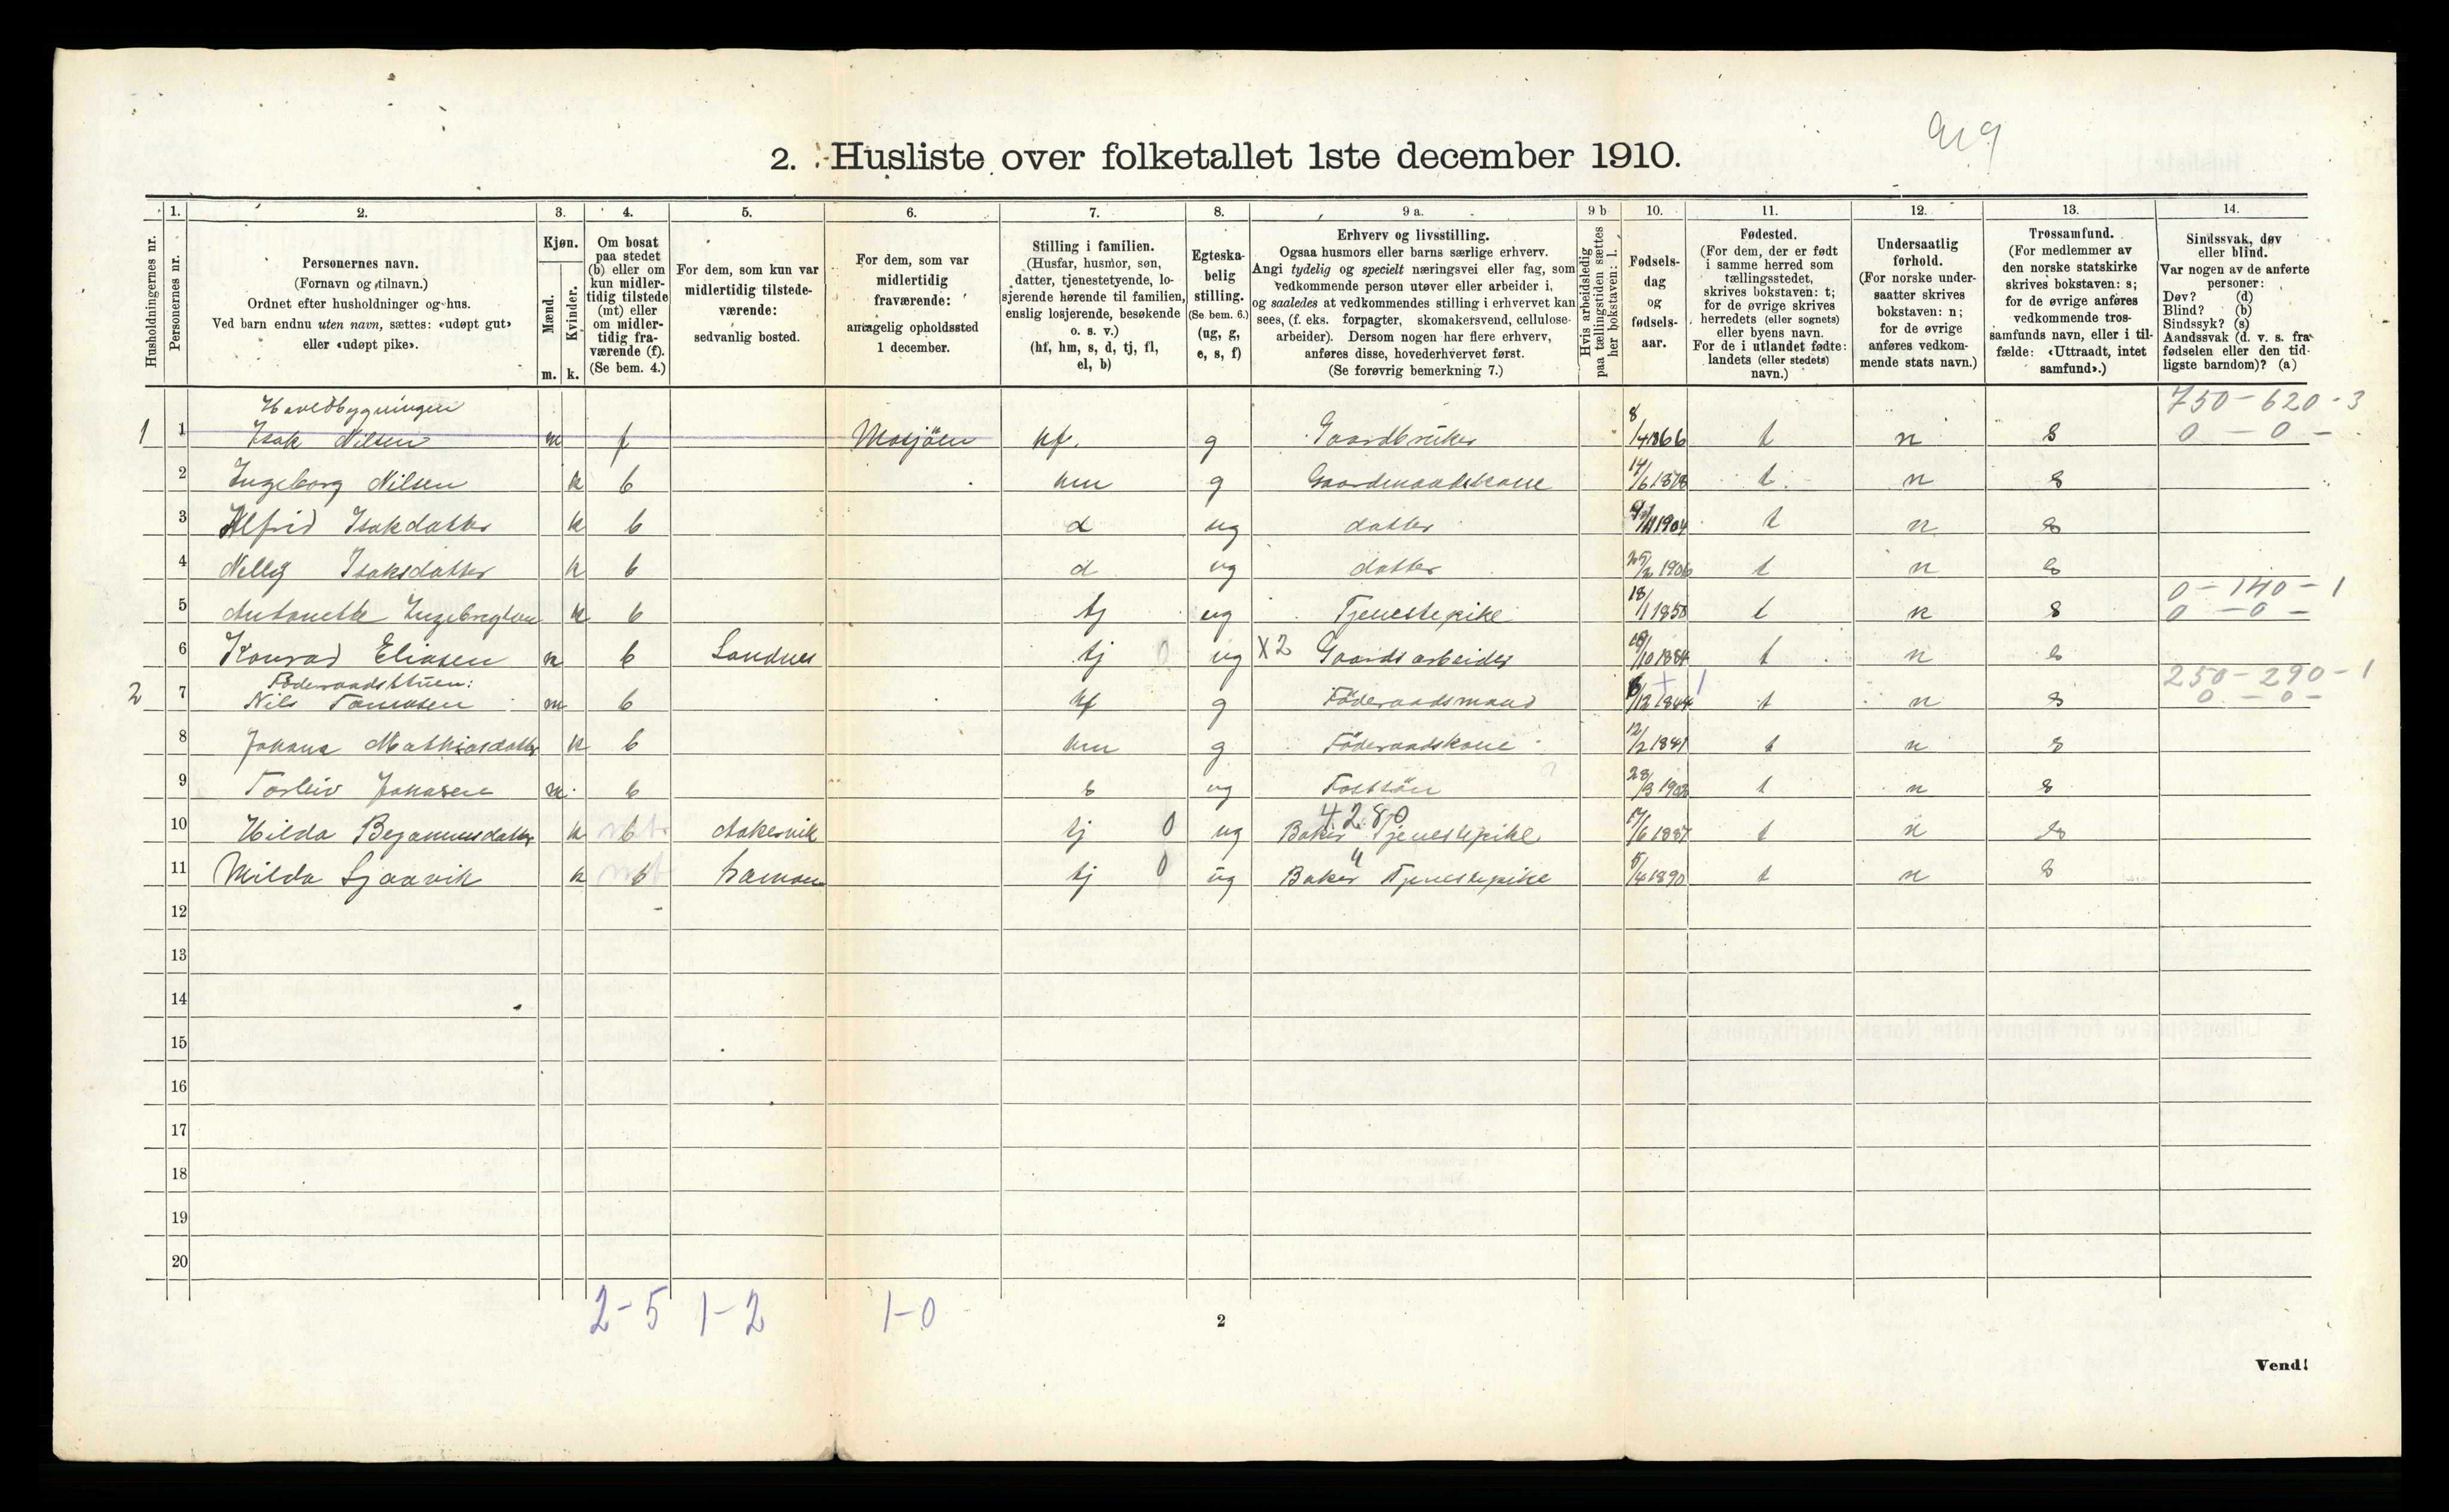 919
2. Husliste over folketallet 1ste december 1910.
Husholdningernes nr.
1. Personernes nr.
2. Personernes navn.
(Fornavn og tilnavn.)
Ordnet efter husholdninger og hus.
Ved barn endnu uten navn, sættes: «udøpt gut»
eller «udøpt pike».
3. Kjøn.
Mænd. Kvinder.
m. k.
4. Om bosat
paa stedet
(b) eller om
kun midler-
tidig tilstede
(mt) eller
om midler-
tidig fra-
værende (f).
(Se bem. 4.)
5. For dem, som kun var
midlertidig tilstede-
værende:
sedvanlig bosted.
6. For dem, som var
midlertidig
fraværende:
antagelig opholdssted
1 december.
7. Stilling i familien.
(Husfar, husmor, søn,
datter, tjenestetyende, lo-
sjerende hørende til familien,
enslig losjerende, besøkende
o. s. v.)
(hf, hm, s, d, tj, fl,
el, b)
8. Egteska-
belig
stilling.
(Se bem. 6.)
(ug, g,
e, s, f)
9 a. Erhverv og livsstilling.
Ogsaa husmors eller barns særlige erhverv.
Angi tydelig og specielt næringsvei eller fag, som
vedkommende person utøver eller arbeider i,
og saaledes at vedkommendes stilling i erhvervet kan
sees, (f. eks. forpagter, skomakersvend, cellulose-
arbeider). Dersom nogen har flere erhverv,
anføres disse, hovederhvervet først.
(Se forøvrig bemerkning 7.)
9 b Hvis arbeidsledig
paa tællingstiden sættes
her bokstaven: l.
10. Fødsels-
dag
og
fødsels-
aar.
11. Fødested.
(For dem, der er født
i samme herred som
tællingsstedet,
skrives bokstaven: t;
for de øvrige skrives
herredets (eller sognets)
eller byens navn.
For de i utlandet fødte:
landets (eller stedets)
navn.)
12. Undersaatlig
forhold.
(For norske under-
saatter skrives
bokstaven: n;
for de øvrige
anføres vedkom-
mende stats navn.)
13. Trossamfund.
(For medlemmer av
den norske statskirke
skrives bokstaven: s;
for de øvrige anføres
vedkommende tros-
samfunds navn, eller i til-
fælde: «Uttraadt, intet
samfund».)
14. Sindssvak, døv
eller blind.
Var nogen av de anførte
personer:
Døv? (d)
Blind? (b)
Sindssyk? (s)
Aandssvak (d. v. s. fra
fødselen eller den tid-
ligste barndom)? (a)
Hovedbygningen 750 - 620 - 3
1 1 Isak Nilsen m f Mosjöen hf. g Gaardbruker 8/4 1866 t n s 0 - 0 -
2 Ingeborg Nilsen k b hm g Gaardmandskone 14/6 1878 t n s
3 Alfrid Isakdatter k b d ug datter 1904 t n s
4 Nelly Isaksdatter k b d ug datter 25/2 1906 t n s 0 - 140 - 1
5 Antonette Ingebregtsen k b tj ug Tjenestepike 18/1 1858 t n s 0 - 0 -
6 Konrad Eliasen m b Sandnes tj 0 ug X2 Gaardsarbeider /10 1884 t n s
Föderaadsstuen: 250 - 290 - 1
2 7 Nils Tomasen m b hf g Föderaadsmand 6/12 1844 t n s 0 - 0 -
8 Johana Mathiasdatter k b hm g Föderaadskone 12/2 1841 t n s
9 Torleiv Johansen m b s ug Fostsön 28/3 1902 t n s
4280
10 Hilda Benjaminsdatter k mt b Aakervik tj 0 ug Baker Tjenestepike 17/6 1887 t n s
"
11 Milda Sjaavik k mt b tj 0 ug Baker Tjenestepike 5/4 1890 t n s
12
13
14
15
16
17
18
19
20
2-5 1-2 1-0
2
Vend!